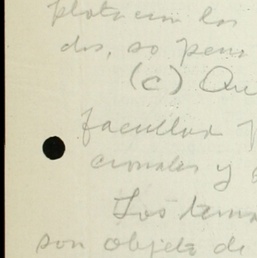 plata con los
dos, so pena
(c) Que
facultad
cionales y
Los dema
son objeto de